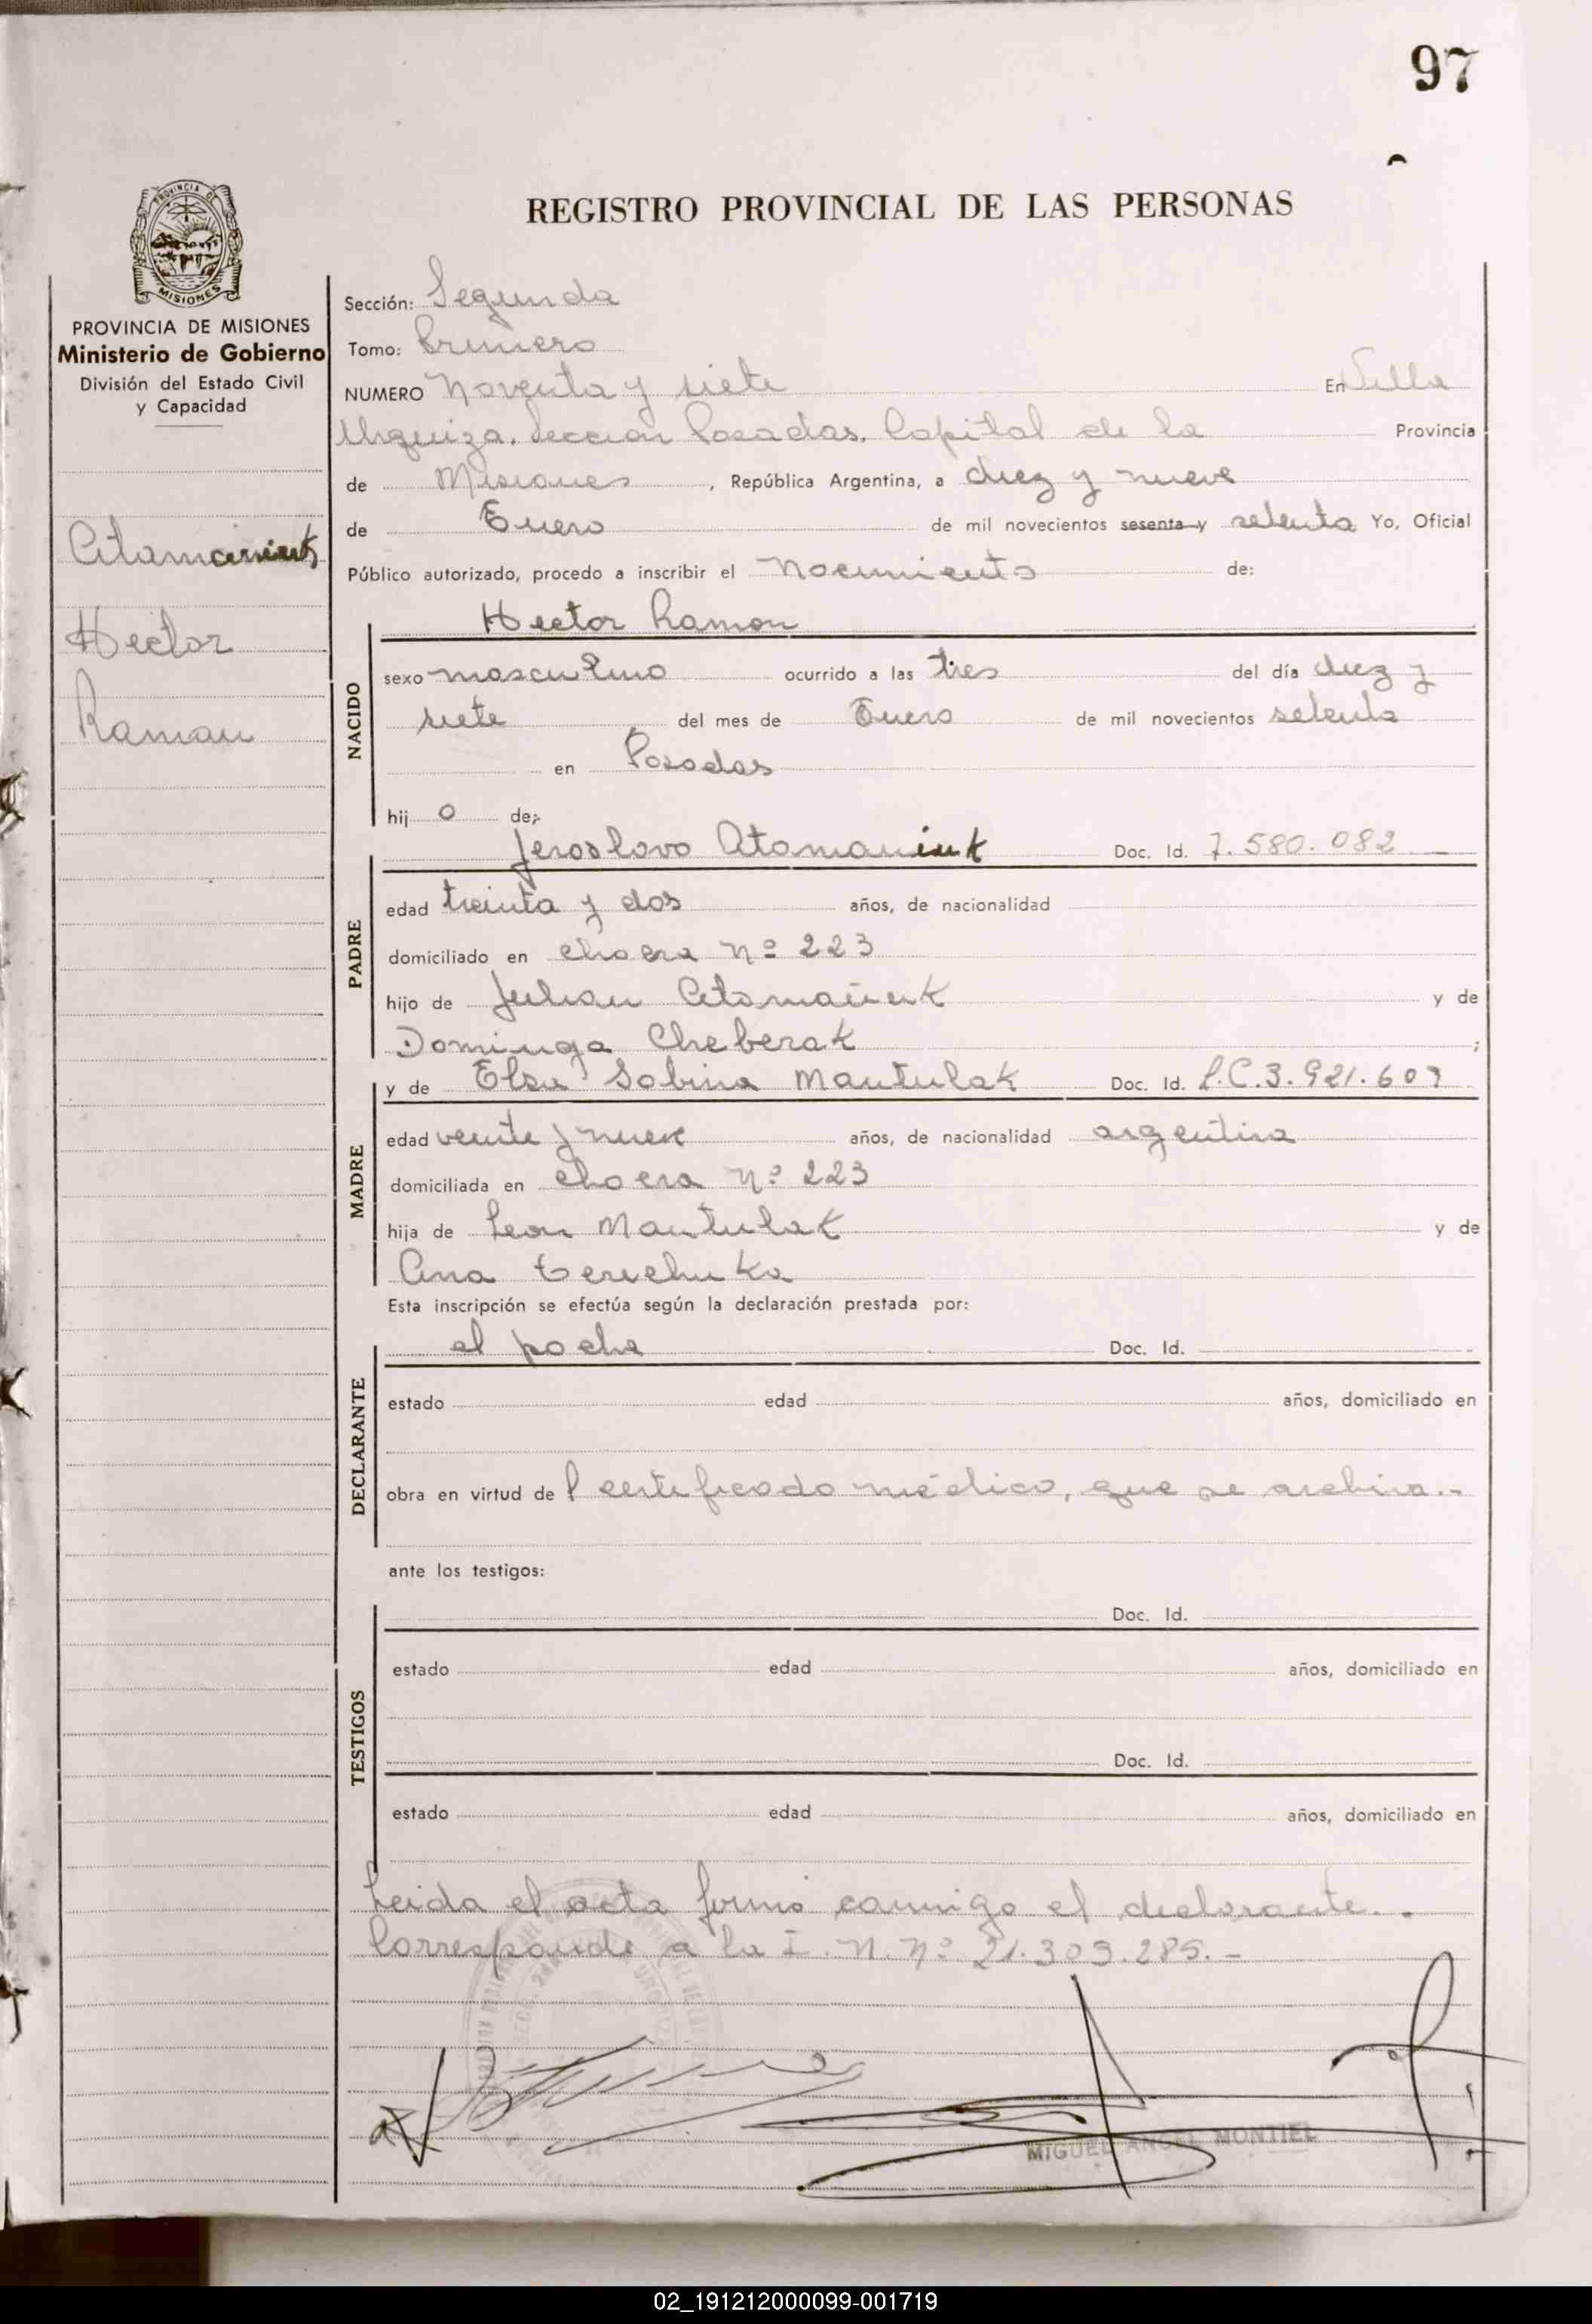 97
REGISTRO PROVINCIAL DE LAS PERSONAS
PROVINCIA DE
MISIONES
PROVINCIA DE MISIONES
Ministerio de Gobierno
División del Estado Civil
y Capacidad
Atamaniuk
Hector
Ramon
Sección: Segunda
Tomo: Primero
NUMERO Noventa y siete En Villa
Urquiza, Seccion Posadas, Capital de la Provincia
de Misiones, República Argentina, a diez y nueve
de Enero de mil novecientos sesenta y setenta Yo, Oficial
Público autorizado, procedo a inscribir el Nacimiento de:
Hector Ramon
NACIDO
sexo masculino ocurrido a las tres del día diez y
siete del mes de Enero de mil novecientos setenta
en Posadas
hij o de:
Jeroslavo Atamaniuk Doc. Id. 7.580.082
PADRE
edad treinta y dos años, de nacionalidad
domiciliado en chacra Nº 223
hijo de Julian Atamaniuk y de
Dominga Cheberak ;
y de Elsa Sabina Mantulak Doc. Id. L.C.3.921.603
MADRE
edad veinte y nueve años, de nacionalidad argentina
domiciliada en chacra Nº 223
hija de Leon Mantulak y de
Ana
Esta inscripción se efectúa según la declaración prestada por:
el padre Doc. Id.
DECLARANTE
estado edad años, domiciliado en
obra en virtud de l certificado médico, que se archiva.-
ante los testigos:
Doc. Id.
TESTIGOS
estado edad años, domiciliado en
Doc. Id.
estado edad años, domiciliado en
Leida el acta firmó conmigo el declarante..
Corresponde a la I. N. Nº 21.303.285.-
MIGUEL ANGEL MONTIEL
02_191212000099-001719